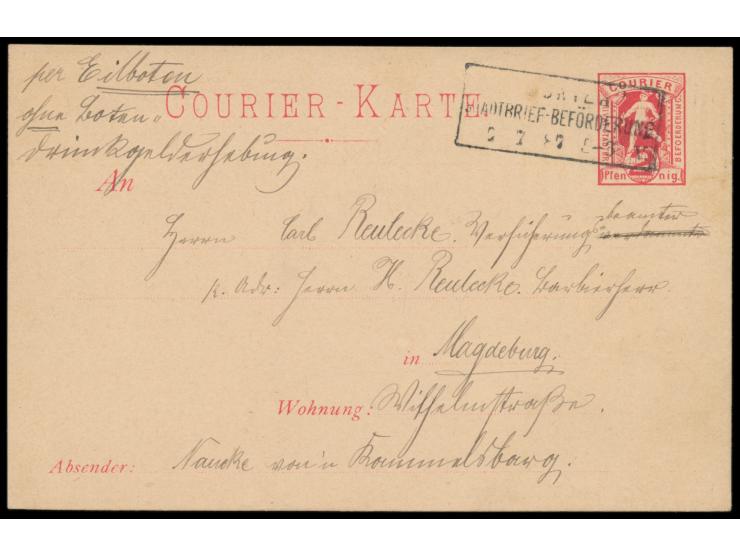 per Eilboten
ohne Boten-
trinkgelderhebung.
COURIER-KARTE
STADTBRIEF-BEFÖRDERUNG
COURIER
BEFOERDERUNG
2
Pfennig.
An
Herrn Carl Reulecke. Versicherungsbeamter
p. Adr: Herrn H. Reulecke. Barbierherr.
in Magdeburg.
Wohnung: Wilhelmstraße.
Absender: Naucke von'n Kammelsbarg.